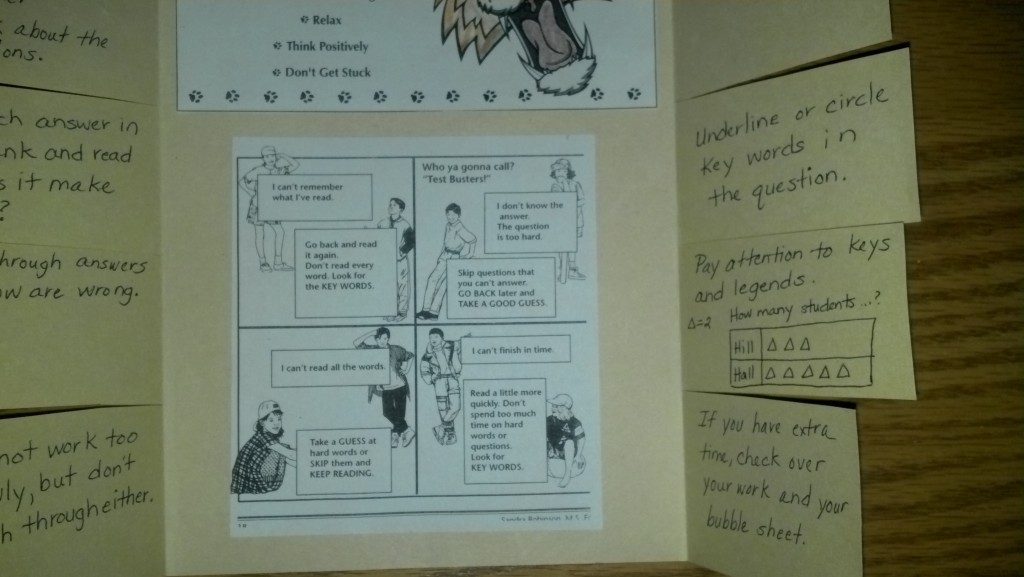 about the
ons.
ch answer in
nk and read
s it make
?
hrough answers
ow are wrong.
not work too
ly, but don't
h through either.
Relax
Think Positively
Don't Get Stuck
I can't remember
what I've read.
Go back and read
it again.
Don't read every
word. Look for
the KEY WORDS.
Who ya gonna call?
"Test Busters!"
I don't know the
answer.
The question
is too hard.
Skip questions that
you can't answer.
GO BACK later and
TAKE A GOOD GUESS.
I can't read all the words.
Take a GUESS at
hard words or
SKIP them and
KEEP READING.
I can't finish in time.
Read a little more
quickly. Don't
spend too much
time on hard
words or
questions.
Look for
KEY WORDS.
Underline or circle
key words in
the question.
Pay attention to keys
and legends.
Δ=2 How many students...?
Hill Δ Δ Δ
Hall Δ Δ Δ Δ Δ
If you have extra
time, check over
your work and your
bubble sheet.